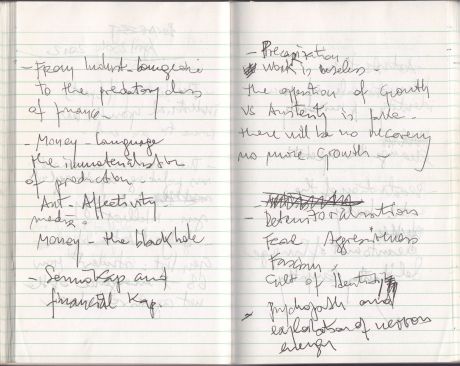 - From Indust-bourgeoisie
to the predatory class
of finance
- Money - Language
the immaterialisation
of production
Ant - Affectivity
media.
Money - the black hole
- SemioKap and
financial Kap.
- Precarization
Work is useless -
the question of Growth
vs Austerity is fake -
there will be no recovery
no more Growth -
- Deterritorialisations
Fear Aggressiveness
Fascism
Cult of Identity
- psychopath and
exploitation of nervous
energy